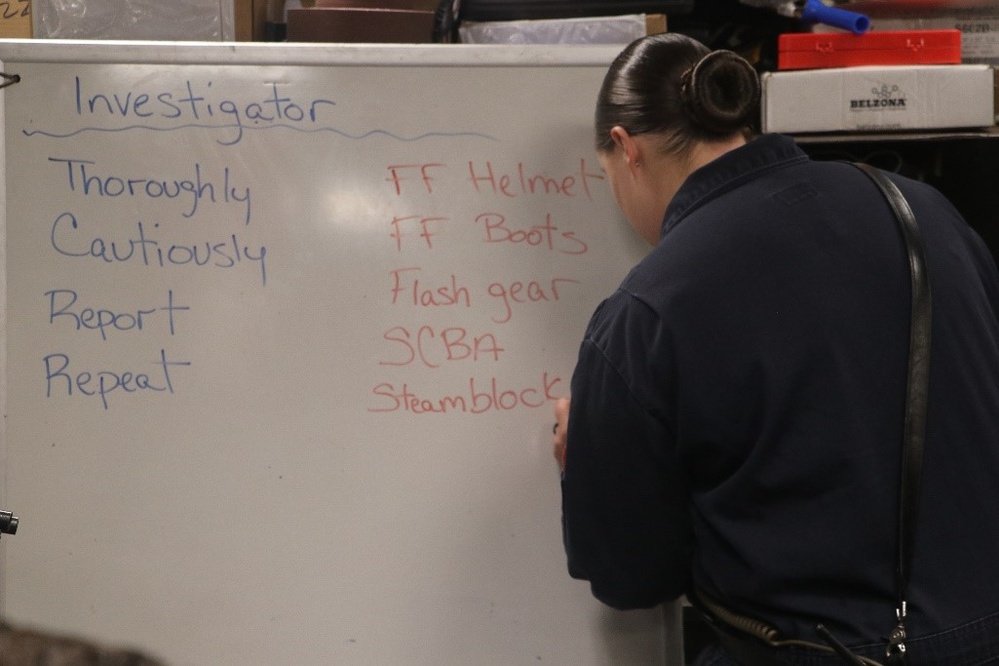 Investigator
Thoroughly
Cautiously
Report
Repeat
FF Helmet
FF Boots
Flash gear
SCBA
Steamblock
BELZONA